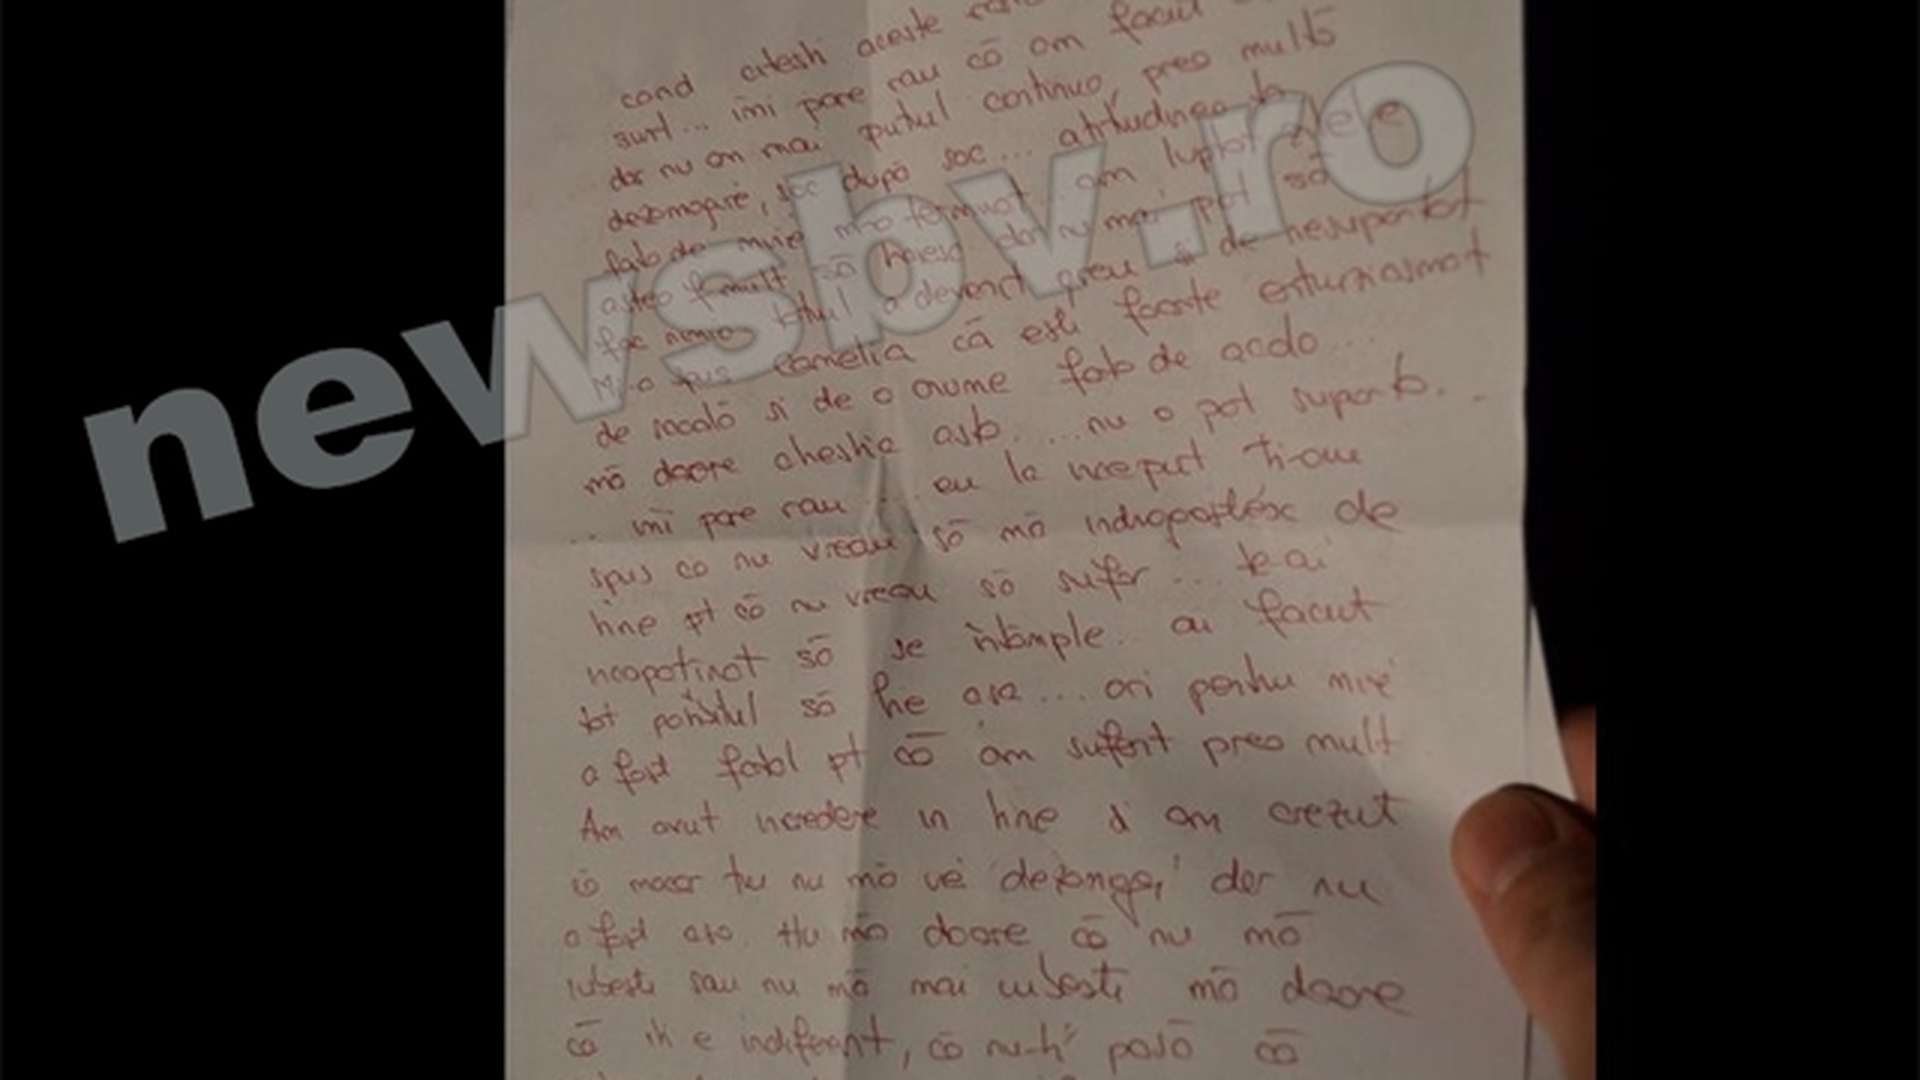 cand citesti aceste
sunt... imi pare rau că am facut
dar nu am mai putut continua, prea multă
dezamagire, soc după soc... atitudinea ta
fata de mine m-a terminat. am luptat zilele
astea f mult să traiesc dar nu mai pot să
fac nimic totul a devenit greu si de nesuportat
Mi-a spus Camelia că esti foarte entuziasmat
de modă si de o anume fata de acolo...
mă doare chestia asta.....nu o pot suporta...
.. imi pare rau.... eu la inceput ti-am
spus ca nu vreau să mă indragostesc de
tine pt că nu vreau să sufar... te-ai
incapatinat să se intâmple.. ai facut
tot posibilul să fie asa... ori pentru mine
a fost fatal pt că am suferit prea mult
Am avut incredere in tine si am crezut
că macar tu nu mă vei dezamagi dar nu
a fost asa. Nu mă doare că nu mă
iubesti sau nu mă mai iubesti mă doare
că iti e indiferent, că nu-ti pasă că
newsbv.ro